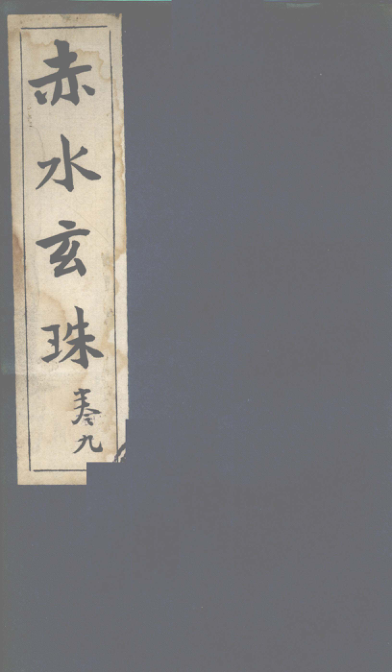 赤水玄珠
卷九